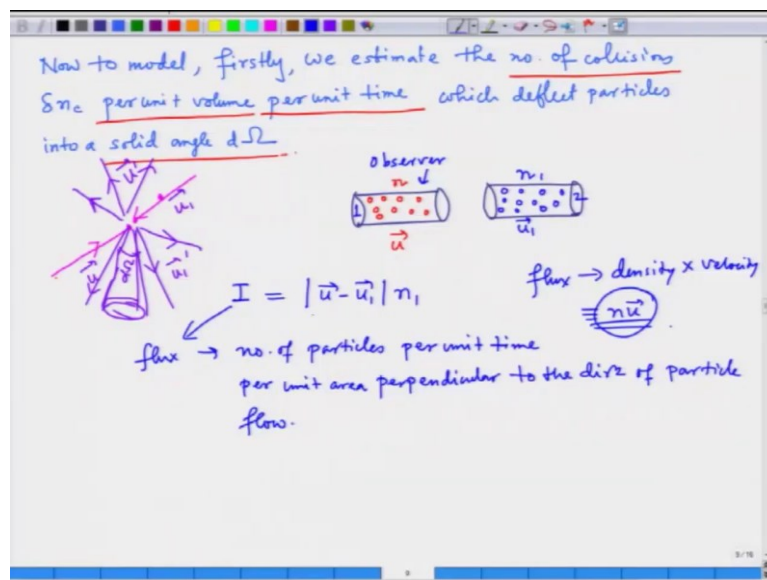 Now to model, firstly, we estimate the no. of collisions
δn_c per unit volume per unit time which deflect particles
into a solid angle dΩ.
u⃗'
u⃗₁
dΩ
u⃗
u⃗₁'
observer
n
1
u⃗
n₁
2
u⃗₁
flux → density × velocity
nu⃗
I = |u⃗ - u⃗₁| n₁
flux → no. of particles per unit time
per unit area perpendicular to the dirⁿ of particle
flow.
9/16
9